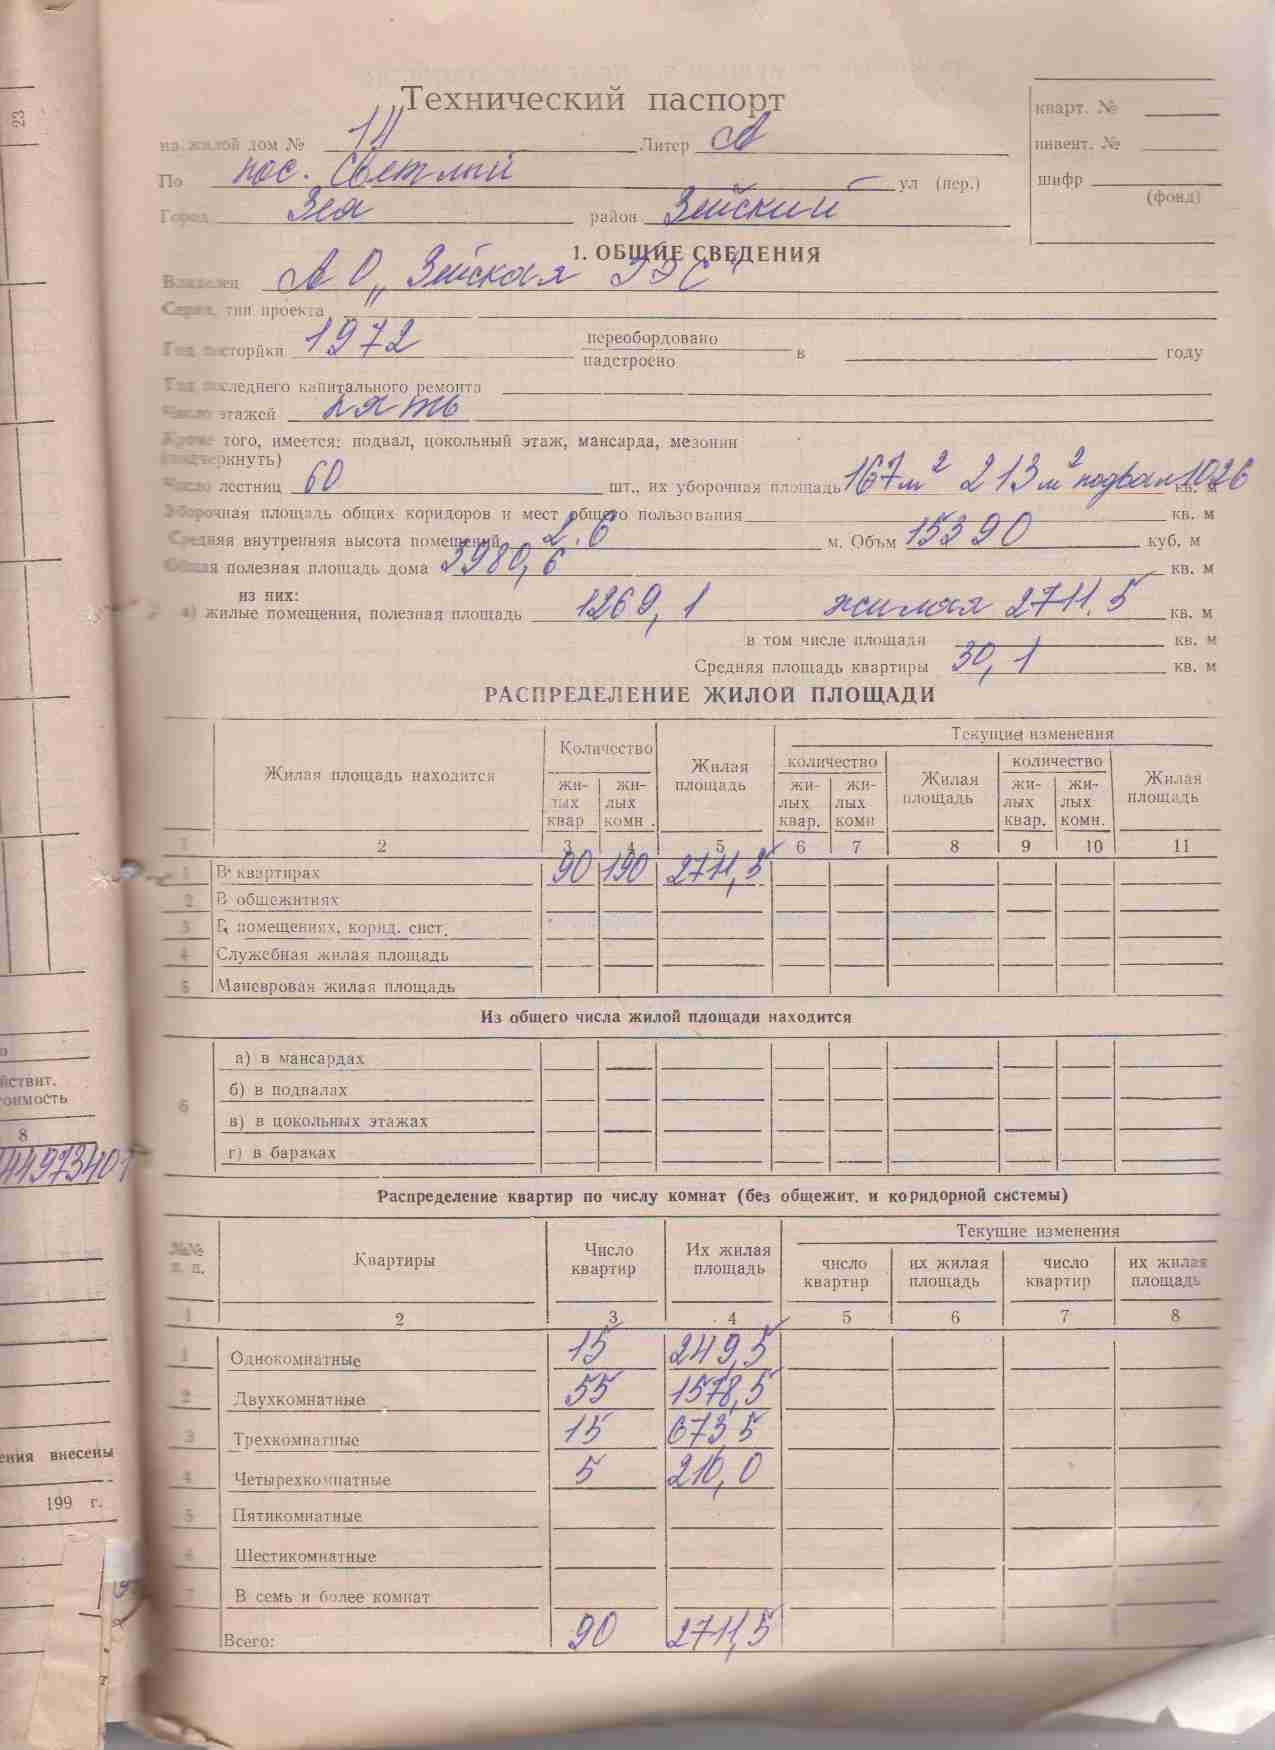 23
Технический паспорт
на жилой дом № 14 Литер А
кварт. №
инвент. №
По пос. Светлый ул (пер.)
шифр
(фонд)
Город Зея район Зейский
1. ОБЩИЕ СВЕДЕНИЯ
Владелец АО „Зейская ГЭС“
Серия, тип проекта
Год посторйки 1972 переобордовано
надстроено в году
Год последнего капитального ремонта
Число этажей пять
Кроме того, имеется: подвал, цокольный этаж, мансарда, мезонин
(подчеркнуть)
Число лестниц 60 шт., их уборочная площадь 167м² 213м² подвал 1026 кв. м
Уборочная площадь общих коридоров и мест общего пользования кв. м
Средняя внутренняя высота помещений 2.6 м. Объм 15390 куб, м
Общая полезная площадь дома 3980,6 кв. м
из них:
а) жилые помещения, полезная площадь 1269,1 жилая 2711.5 кв. м
в том числе площади кв. м
Средняя площадь квартиры 30,1 кв. м
РАСПРЕДЕЛЕНИЕ ЖИЛОЙ ПЛОЩАДИ
Жилая площадь находится Количество Жилая площадь Текущие изменения
количество Жилая площадь количество Жилая площадь
жи-лых квар жи-лых комн. жи-лых квар. жи-лых комн жи-лых квар. жи-лых комн.
1 2 3 4 5 6 7 8 9 10 11
1 В квартирах 90 190 2711,5
2 В общежитиях
3 В помещениях, корид. сист.
4 Служебная жилая площадь
5 Маневровая жилая площадь
Из общего числа жилой площади находится
а) в мансардах
б) в подвалах
6
в) в цокольных этажах
г) в бараках
Распределение квартир по числу комнат (без общежит. и коридорной системы)
№№ п. п. Квартиры Число квартир Их жилая площадь Текущие изменения
число квартир их жилая площадь число квартир их жилая площадь
1 2 3 4 5 6 7 8
1 Однокомнатные 15 249,5
2 Двухкомнатные 55 1578,5
3 Трехкомнатные 15 673,5
4 Четырехкомнатные 5 210,0
5 Пятикомнатные
6 Шестикомнатные
7 В семь и более комнат
Всего: 90 2711,5
йствит.
оимость
8
ения внесены
199 г.